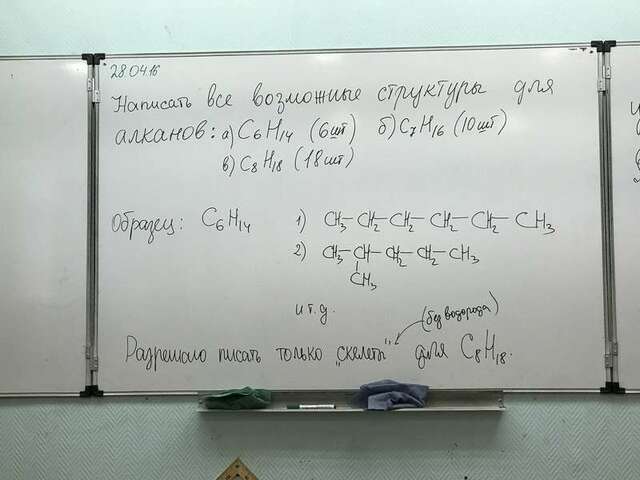 28.04.16
Написать все возможные структуры для
алканов: а) C6H14 (6шт) б) C7H16 (10шт)
в) C8H18 (18шт)
Образец: C6H14 1) CH3-CH2-CH2-CH2-CH2-CH3
2) CH3-CH-CH2-CH2-CH3
CH3
и т.д.
(без водорода)
Разрешаю писать только „скелеты" для C8H18.